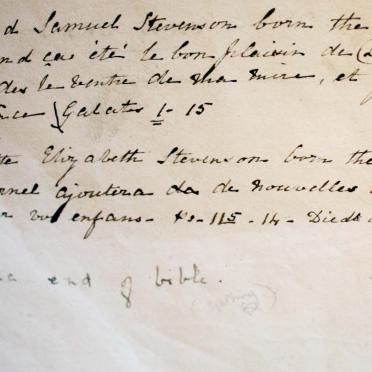 d Samuel Stevenson born the
nd ça été le bon plaisir de
des le ventre de ma mère, et
ce Galates 1-15
Elizabeth Stevenson born the
rnel ajoutera da de nouvelles
r vos enfans - Ps - 115 - 14 - Died
end of bible.